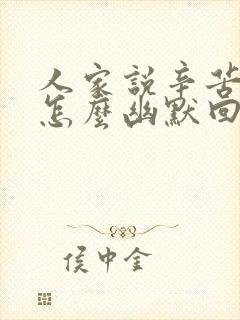 人家説辛苦
怎麼幽默回
侯中金